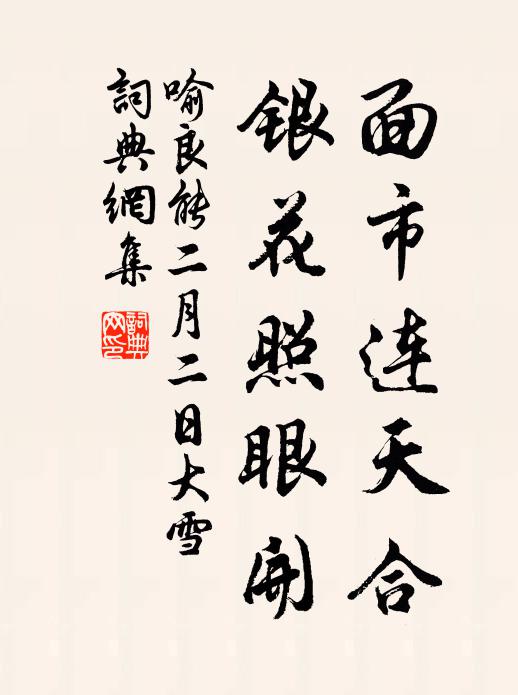 面市连天合
银花照眼開
喻良能二月二日大雪
詞典網集
詞典网印